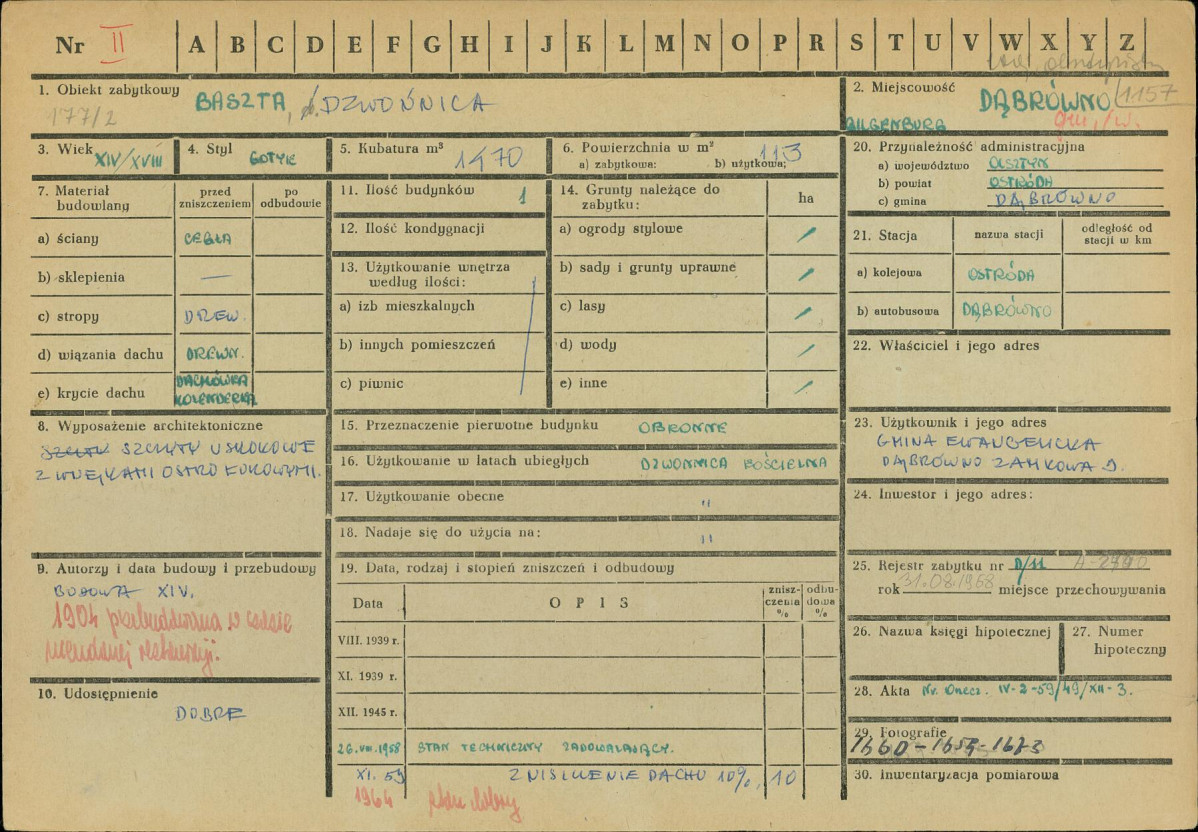 Nr II A B C D E F G H I J K L M N O P R S T U V W X Y Z
1. Obiekt zabytkowy BASZTA, DZWONNICA
177/2
2. Miejscowość DĄBRÓWNO 1157
GILGENBURG gm. /w.
3. Wiek XIV/XVIII
4. Styl GOTYK
5. Kubatura m³ 1470
6. Powierzchnia w m² 113
a) zabytkowa: b) użytkowa;
20. Przynależność administracyjna
a) województwo OLSZTYN
b) powiat OSTRÓDA
c) gmina DĄBRÓWNO
7. Materiał budowlany
przed zniszczeniem
po odbudowie
a) ściany CEGŁA
b) sklepienia —
c) stropy DREW.
d) wiązania dachu DREWN.
e) krycie dachu DACHÓWKA
HOLENDERKA
11. Ilość budynków 1
12. Ilość kondygnacji
13. Użytkowanie wnętrza
według ilości:
a) izb mieszkalnych
b) innych pomieszczeń
c) piwnic
14. Grunty należące do
zabytku: ha
a) ogrody stylowe
b) sady i grunty uprawne
c) lasy
d) wody
e) inne
21. Stacja
nazwa stacji
odległość od
stacji w km
a) kolejowa OSTRÓDA
b) autobusowa DĄBRÓWNO
22. Właściciel i jego adres
8. Wyposażenie architektoniczne
SZCZYTY USKOKOWE
Z WNĘKAMI OSTROŁUKOWYMI.
15. Przeznaczenie pierwotne budynku OBRONNE
16. Użytkowanie w latach ubiegłych DZWONNICA KOŚCIELNA
17. Użytkowanie obecne "
18. Nadaje się do użycia na: "
23. Użytkownik i jego adres
GMINA EWANGELICKA
DĄBRÓWNO ZAMKOWA 9.
24. Inwestor i jego adres:
9. Autorzy i data budowy i przebudowy
BUDOWA XIV.
1904 przebudowana w czasie
nieudanej restauracji.
10. Udostępnienie
DOBRE
19. Data, rodzaj i stopień zniszczeń i odbudowy
Data OPIS
znisz-
czenia
%
odbu-
dowa
%
VIII. 1939 r.
XI. 1939 r.
XII. 1945 r.
26.VIII.1958 STAN TECHNICZNY ZADOWALAJĄCY.
XI. 59 ZNISZCZENIE DACHU 10%, 10
1964 stan dobry
25. Rejestr zabytku nr D/11
rok 31.08.1968 miejsce przechowywania
26. Nazwa księgi hipotecznej
27. Numer
hipoteczny
28. Akta IV-2-59/49/XII-3.
29. Fotografie
1660-1659-1673
30. Inwentaryzacja pomiarowa